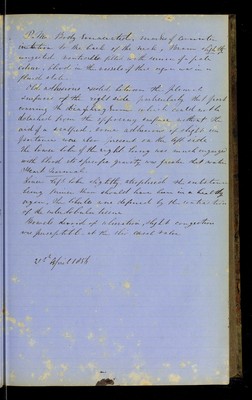 P. M. Body emaciated, marks of cervical
irritation to the back of the neck, Brain slightly
congested, ventricles filled with serum of a pale
colour, blood in the vessels of this region was in a
fluid state.
Old adhesions existed between the pleural
surfaces of the right side, particularly that part
covering the diaphragm which could not be
detached from the opposing surface without the
aid of a scalpel, some adhesions of slight im
portance were also present on the left side
The lower lobe of the right lung was much engorged
with blood its specific gravity was greater than water
Heart normal.
Liver left lobe slightly atrophied its substance
being firmer than should have been in a healthy
organ, the lobules were defined by the
of the interlobular tissue
Bowels devoid of ulceration, slight congestion
was perceptible at the ileo coecal valve
21st April 1856